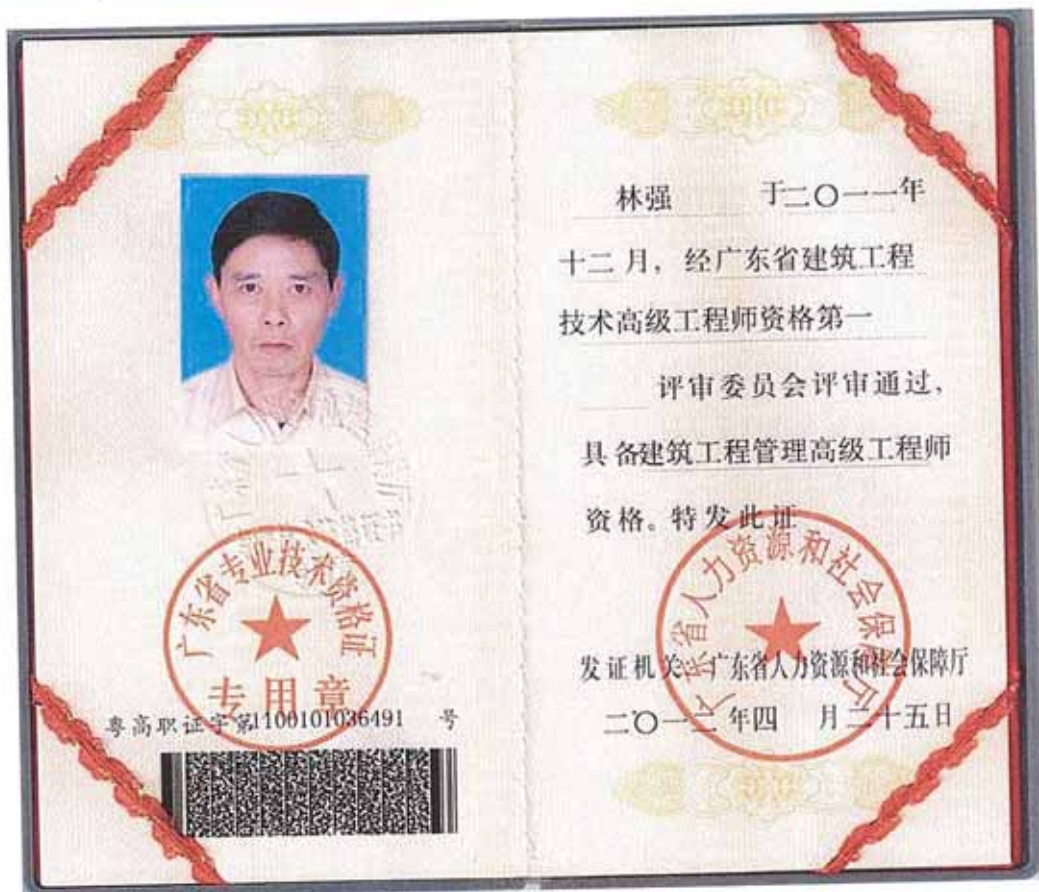 广东省专业技术资格证
专用章
粤高职证字第1100101036491 号
林强 于二〇一一年
十二月，经广东省建筑工程
技术高级工程师资格第一
评审委员会评审通过，
具备建筑工程管理高级工程师
资格。特发此证
广东省人力资源和社会保障厅
发证机关：广东省人力资源和社会保障厅
二〇一二年四 月二十五日